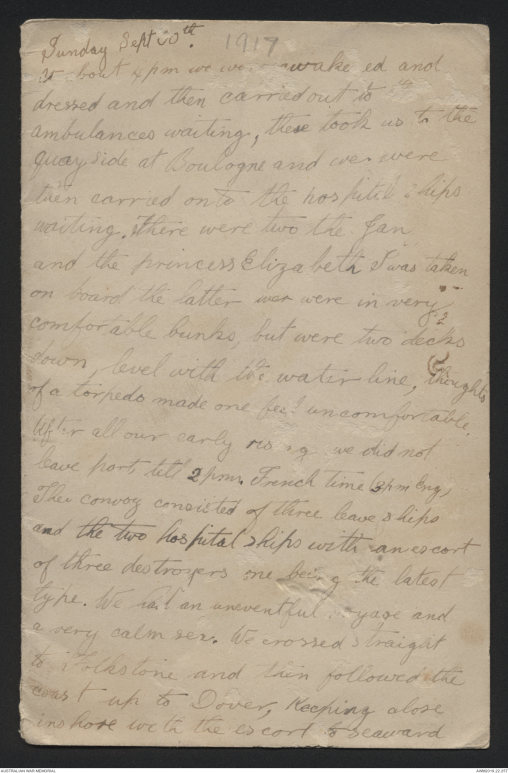 Sunday Sept 30th. 1917
about 4 pm we were awakened and
dressed and then carried out to
ambulances waiting, these took us to the
quay side at Boulogne and we were
then carried onto the hospital ships
waiting. There were two the Jan
and the princess Elizabeth I was taken
on board the latter we were in very
comfortable bunks, but were two decks
down, level with the water line, thoughts
of a torpedo made one feel uncomfortable.
After all our early rising we did not
leave port till 2 pm. French time (3 pm Eng)
The convoy consisted of three leave ships
and the two hospital ships with an escort
of three destroyers one being the latest
type. We had an uneventful voyage and
a very calm sea. We crossed straight
to Folkstone and then followed the
coast up to Dover, Keeping close
inshore with the escort to seaward
AUSTRALIAN WAR MEMORIAL